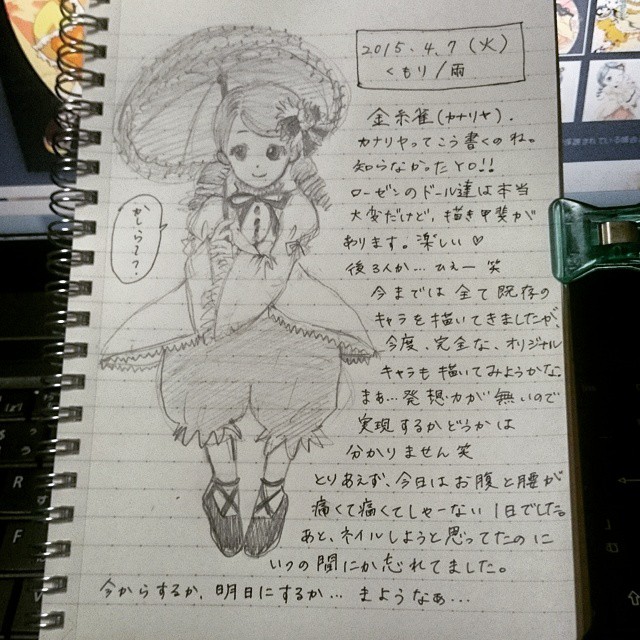 2015.4.7(火)
くもり/雨
金糸雀(カナリヤ).
カナリヤってこう書くのね。
知らなかったYO!!
ローゼンのドール達は本当
大変だけど、描き甲斐が
あります。楽しい♡
後3人か… ひえー 笑
今までは 全て既存の
キャラを描いてきましたが、
今度、完全な、オリジナル
キャラも描いてみようかな
まぁ… 発想力が無いので
実現するかどうかは
分かりません 笑
とりあえず、今日はお腹と腰が
痛くて痛くてしゃーない1日でした。
あと、ネイルしようと思ってたのに
いつの間にか忘れてました。
今からするか、明日にするか… まようなぁ…
かしら~?
R
F
V